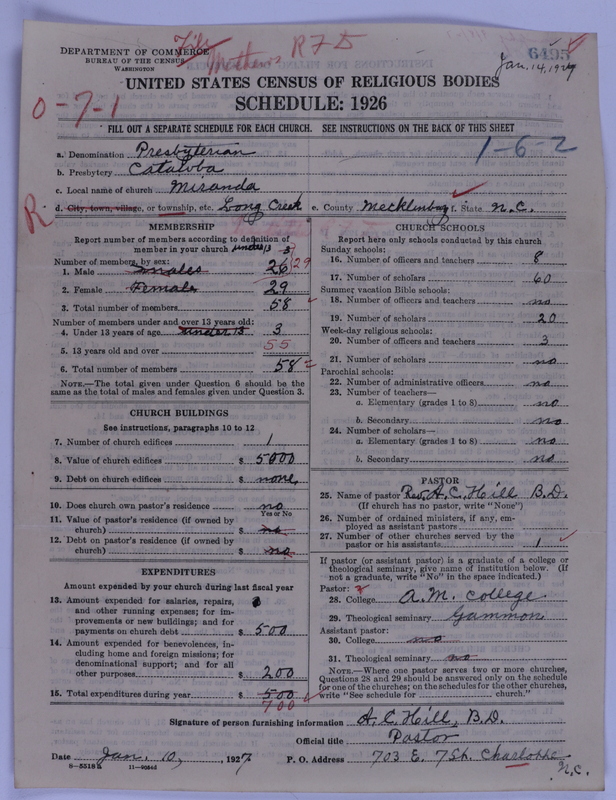 DEPARTMENT OF COMMERCE
BUREAU OF THE CENSUS
WASHINGTON
R7D
6495
Jan. 14, 1927
UNITED STATES CENSUS OF RELIGIOUS BODIES
SCHEDULE: 1926
0-7-1
FILL OUT A SEPARATE SCHEDULE FOR EACH CHURCH. SEE INSTRUCTIONS ON THE BACK OF THIS SHEET
1-6-2
a. Denomination Presbyterian
b. Presbytery Catawba
c. Local name of church Miranda
R
d. City, town, village, or township, etc. Long Creek e. County Mecklinburg f. State N.C.
MEMBERSHIP
Report number of members according to definition of
member in your church under 13 3
Number of members by sex:
1. Male males 26 29
2. Female Females 29
3. Total number of members 58
Number of members under and over 13 years old:
4. Under 13 years of age under 13 3
5. 13 years old and over 55
6. Total number of members 58
NOTE.—The total given under Question 6 should be the
same as the total of males and females given under Question 3.
CHURCH BUILDINGS
See instructions, paragraphs 10 to 12
7. Number of church edifices 1
8. Value of church edifices $ 5000
9. Debt on church edifices $ none
10. Does church own pastor's residence no
Yes or No
11. Value of pastor's residence (if owned by
church) $ no
12. Debt on pastor's residence (if owned by
church) $ no
EXPENDITURES
Amount expended by your church during last fiscal year
13. Amount expended for salaries, repairs,
and other running expenses; for im-
provements or new buildings; and for
payments on church debt $ 500
14. Amount expended for benevolences, in-
cluding home and foreign missions; for
denominational support; and for all
other purposes $ 200
15. Total expenditures during year $ 500
700
CHURCH SCHOOLS
Report here only schools conducted by this church
Sunday schools:
16. Number of officers and teachers 8
17. Number of scholars 60
Summer vacation Bible schools:
18. Number of officers and teachers no
19. Number of scholars 20
Week-day religious schools:
20. Number of officers and teachers 3
21. Number of scholars no
Parochial schools:
22. Number of administrative officers no
23. Number of teachers—
a. Elementary (grades 1 to 8) no
b. Secondary no
24. Number of scholars—
a. Elementary (grades 1 to 8) no
b. Secondary no
PASTOR
25. Name of pastor Rev. A. C. Hill B.D.
(If church has no pastor, write "None")
26. Number of ordained ministers, if any, em-
ployed as assistant pastors
27. Number of other churches served by the
pastor or his assistants 1
If pastor (or assistant pastor) is a graduate of a college or
theological seminary, give name of institution below. (If
not a graduate, write "No" in the space indicated.)
Pastor:
28. College A. M. College
29. Theological seminary Gammon
Assistant pastor:
30. College no
31. Theological seminary no
NOTE.—Where one pastor serves two or more churches,
Questions 28 and 29 should be answered only on the schedule
for one of the churches; on the schedules for the other churches,
write "See schedule for church."
Signature of person furnishing information A. C. Hill, B.D.
Official title Pastor
Date Jan. 10, 1927 P. O. Address 703 E. 7 St. Charlotte
N.C.
8-5518a 11-9094d